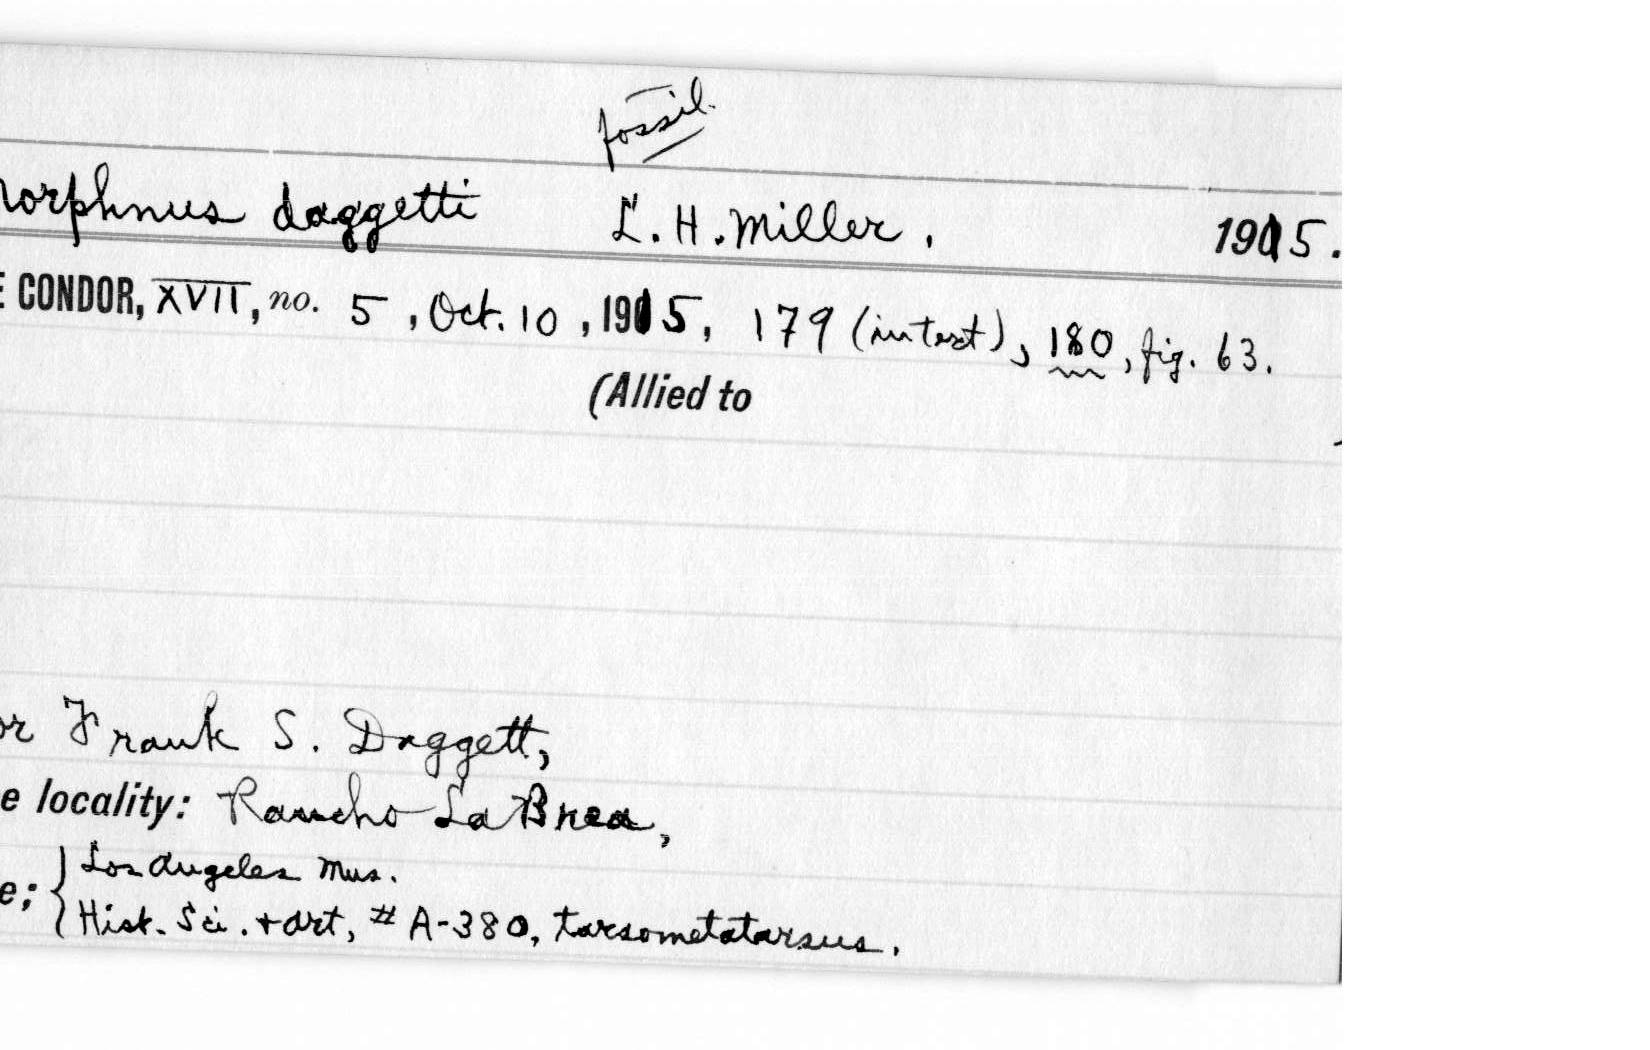 fossil.
morphnus daggetti L. H. Miller. 1915.
E CONDOR, XVII, no. 5, Oct. 10, 1915, 179 (in text), 180, fig. 63.
(Allied to )
or Frank S. Daggett,
e locality: Rancho La Brea,
Los Angeles Mus.
e; { Hist. Sci. + Art, # A-380, tarsometatarsus.